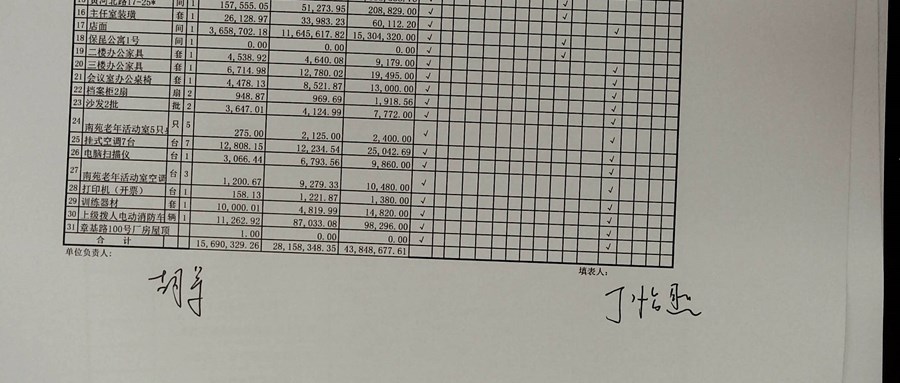 15 黄河北路17-25# 间 1 157,555.05 51,273.95 208,829.00 √ √
16 主任室装璜 套 1 26,128.97 33,983.23 60,112.20 √ √
17 店面 间 1 3,658,702.18 11,645,617.82 15,304,320.00 √ √
18 保昆公寓1号 间 1 0.00 0.00 0.00 √ √
19 二楼办公家具 套 1 4,538.92 4,640.08 9,179.00 √ √
20 三楼办公家具 套 1 6,714.98 12,780.02 19,495.00 √ √
21 会议室办公桌椅 套 1 4,478.13 8,521.87 13,000.00 √ √
22 档案柜2扇 扇 2 948.87 969.69 1,918.56 √ √
23 沙发2批 批 2 3,647.01 4,124.99 7,772.00 √ √
24 南苑老年活动室5只 只 5 275.00 2,125.00 2,400.00 √ √
25 挂式空调7台 台 7 12,808.15 12,234.54 25,042.69 √ √
26 电脑扫描仪 台 1 3,066.44 6,793.56 9,860.00 √ √
27 南苑老年活动室空调 台 3 1,200.67 9,279.33 10,480.00 √ √
28 打印机（开票） 台 1 158.13 1,221.87 1,380.00 √ √
29 训练器材 套 1 10,000.01 4,819.99 14,820.00 √ √
30 上级拨人电动消防车 辆 1 11,262.92 87,033.08 98,296.00 √ √
31 章基路100号厂房屋顶 1.00 0.00 0.00 √ √
合 计 15,690,329.26 28,158,348.35 43,848,677.61
单位负责人： 填表人：
丁怡